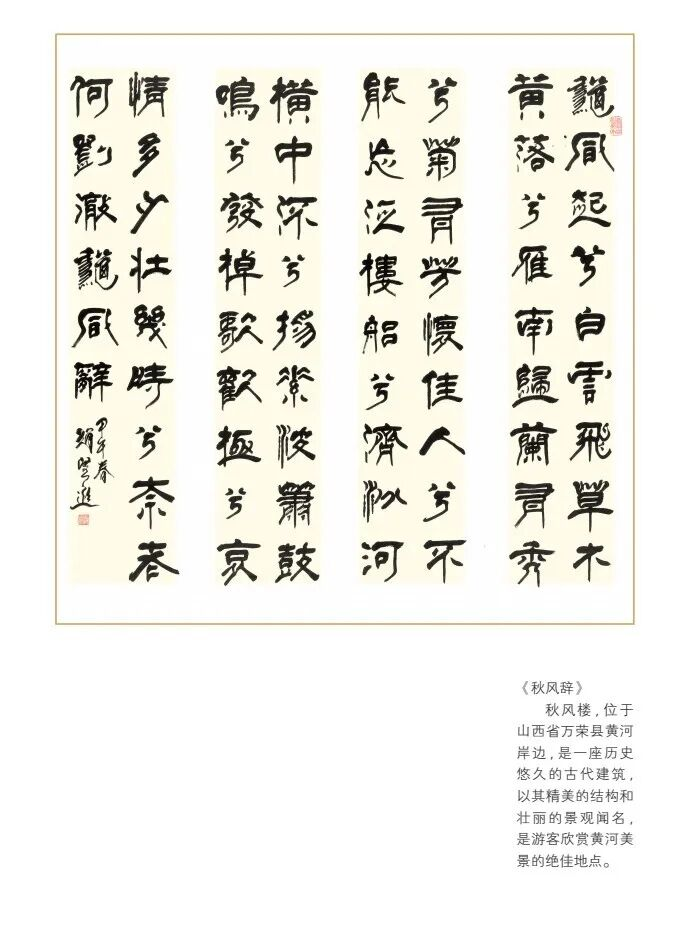 龝風起兮白雲飛草木
黄落兮雁南歸蘭有秀
兮菊有芳懷佳人兮不
能忘泛樓船兮濟汾河
橫中流兮揚素波簫鼓
鳴兮發棹歌歡極兮哀
情多少壯幾時兮奈老
何劉徹龝風辭
甲午春
趙望進
《秋风辞》
秋风楼，位于
山西省万荣县黄河
岸边，是一座历史
悠久的古代建筑，
以其精美的结构和
壮丽的景观闻名，
是游客欣赏黄河美
景的绝佳地点。